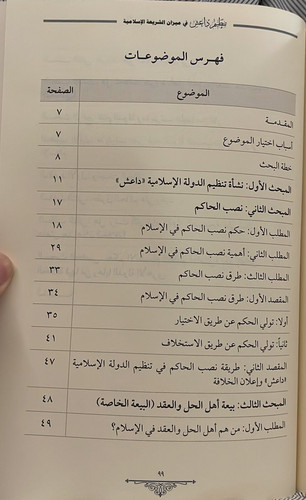 تنظيم داعش في ميزان الشريعة الإسلامية
فهرس الموضوعات
الموضوع الصفحة
المقدمة ٧
أسباب اختيار الموضوع ٧
خطة البحث ٨
المبحث الأول: نشأة تنظيم الدولة الإسلامية «داعش» ١١
المبحث الثاني: نصب الحاكم ١٧
المطلب الأول: حكم نصب الحاكم في الإسلام ١٨
المطلب الثاني: أهمية نصب الحاكم في الإسلام ٢٩
المطلب الثالث: طرق نصب الحاكم ٣٣
المقصد الأول: طرق نصب الحاكم في الإسلام ٣٤
أولا: تولي الحكم عن طريق الاختيار ٣٥
ثانياً: تولي الحكم عن طريق الاستخلاف ٤١
المقصد الثاني: طريقة نصب الحاكم في تنظيم الدولة الإسلامية ٤٧
«داعش» وإعلان الخلافة
المبحث الثالث: بيعة أهل الحل والعقد (البيعة الخاصة) ٤٨
المطلب الأول: من هم أهل الحل والعقد في الإسلام؟ ٤٩
٩٩